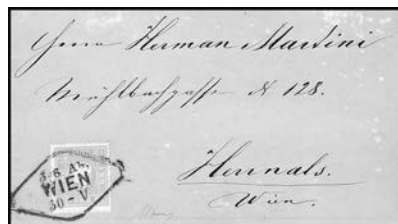 Herrn Herman Martini
Mühlbachgasse N 128.
Hernals.
Wien.
3-6 A.
WIEN
30-V